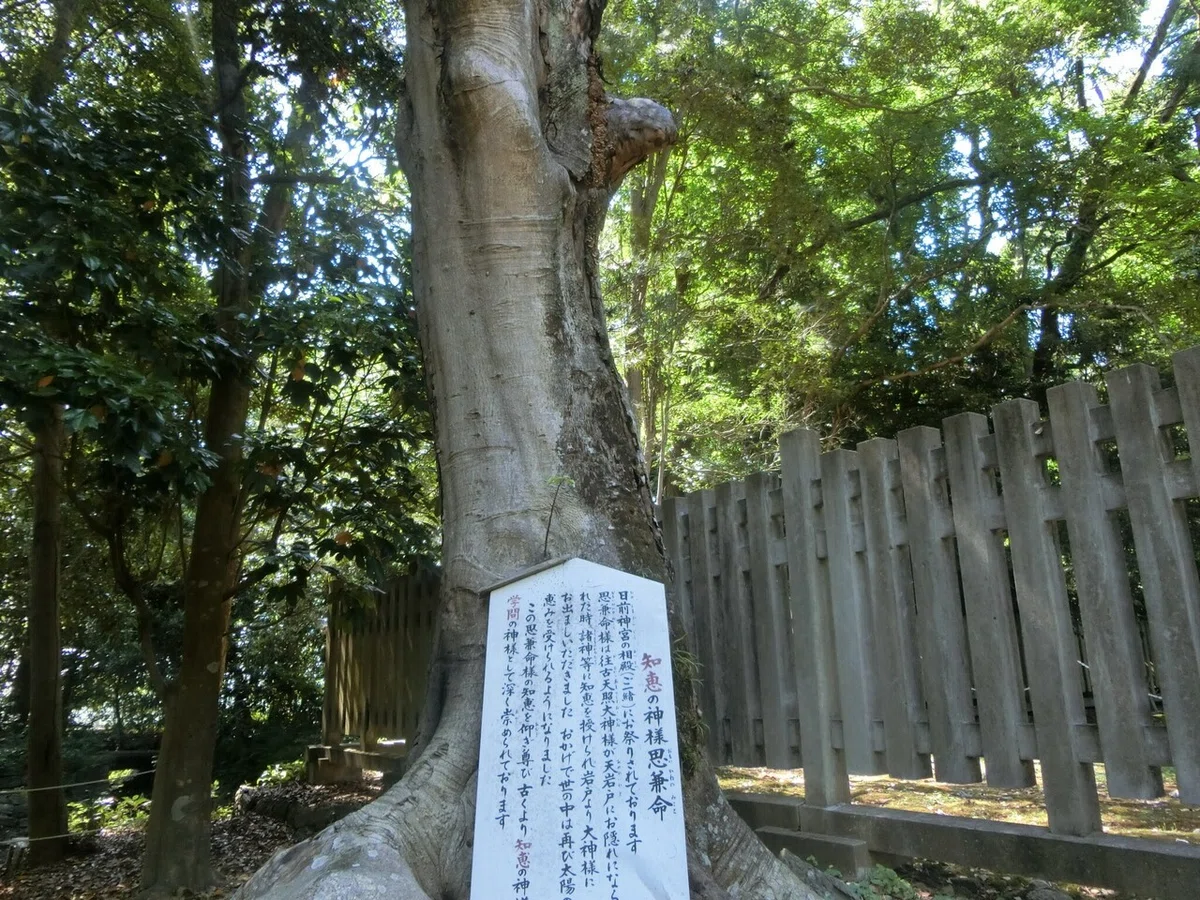 知恵の神様思兼命
日前神宮の相殿(一緒)にお祭りされております
思兼命様は往古天照大神様が天岩戸にお隠れになら
れた時、諸神等に知恵を授けられ岩戸より大神様に
お出ましいただきました おかげで世の中は再び太陽の
恵みを受けられるようになりました
この思兼命様の知恵を仰ぎ尊び 古くより知恵の神様
学問の神様として深く崇められております